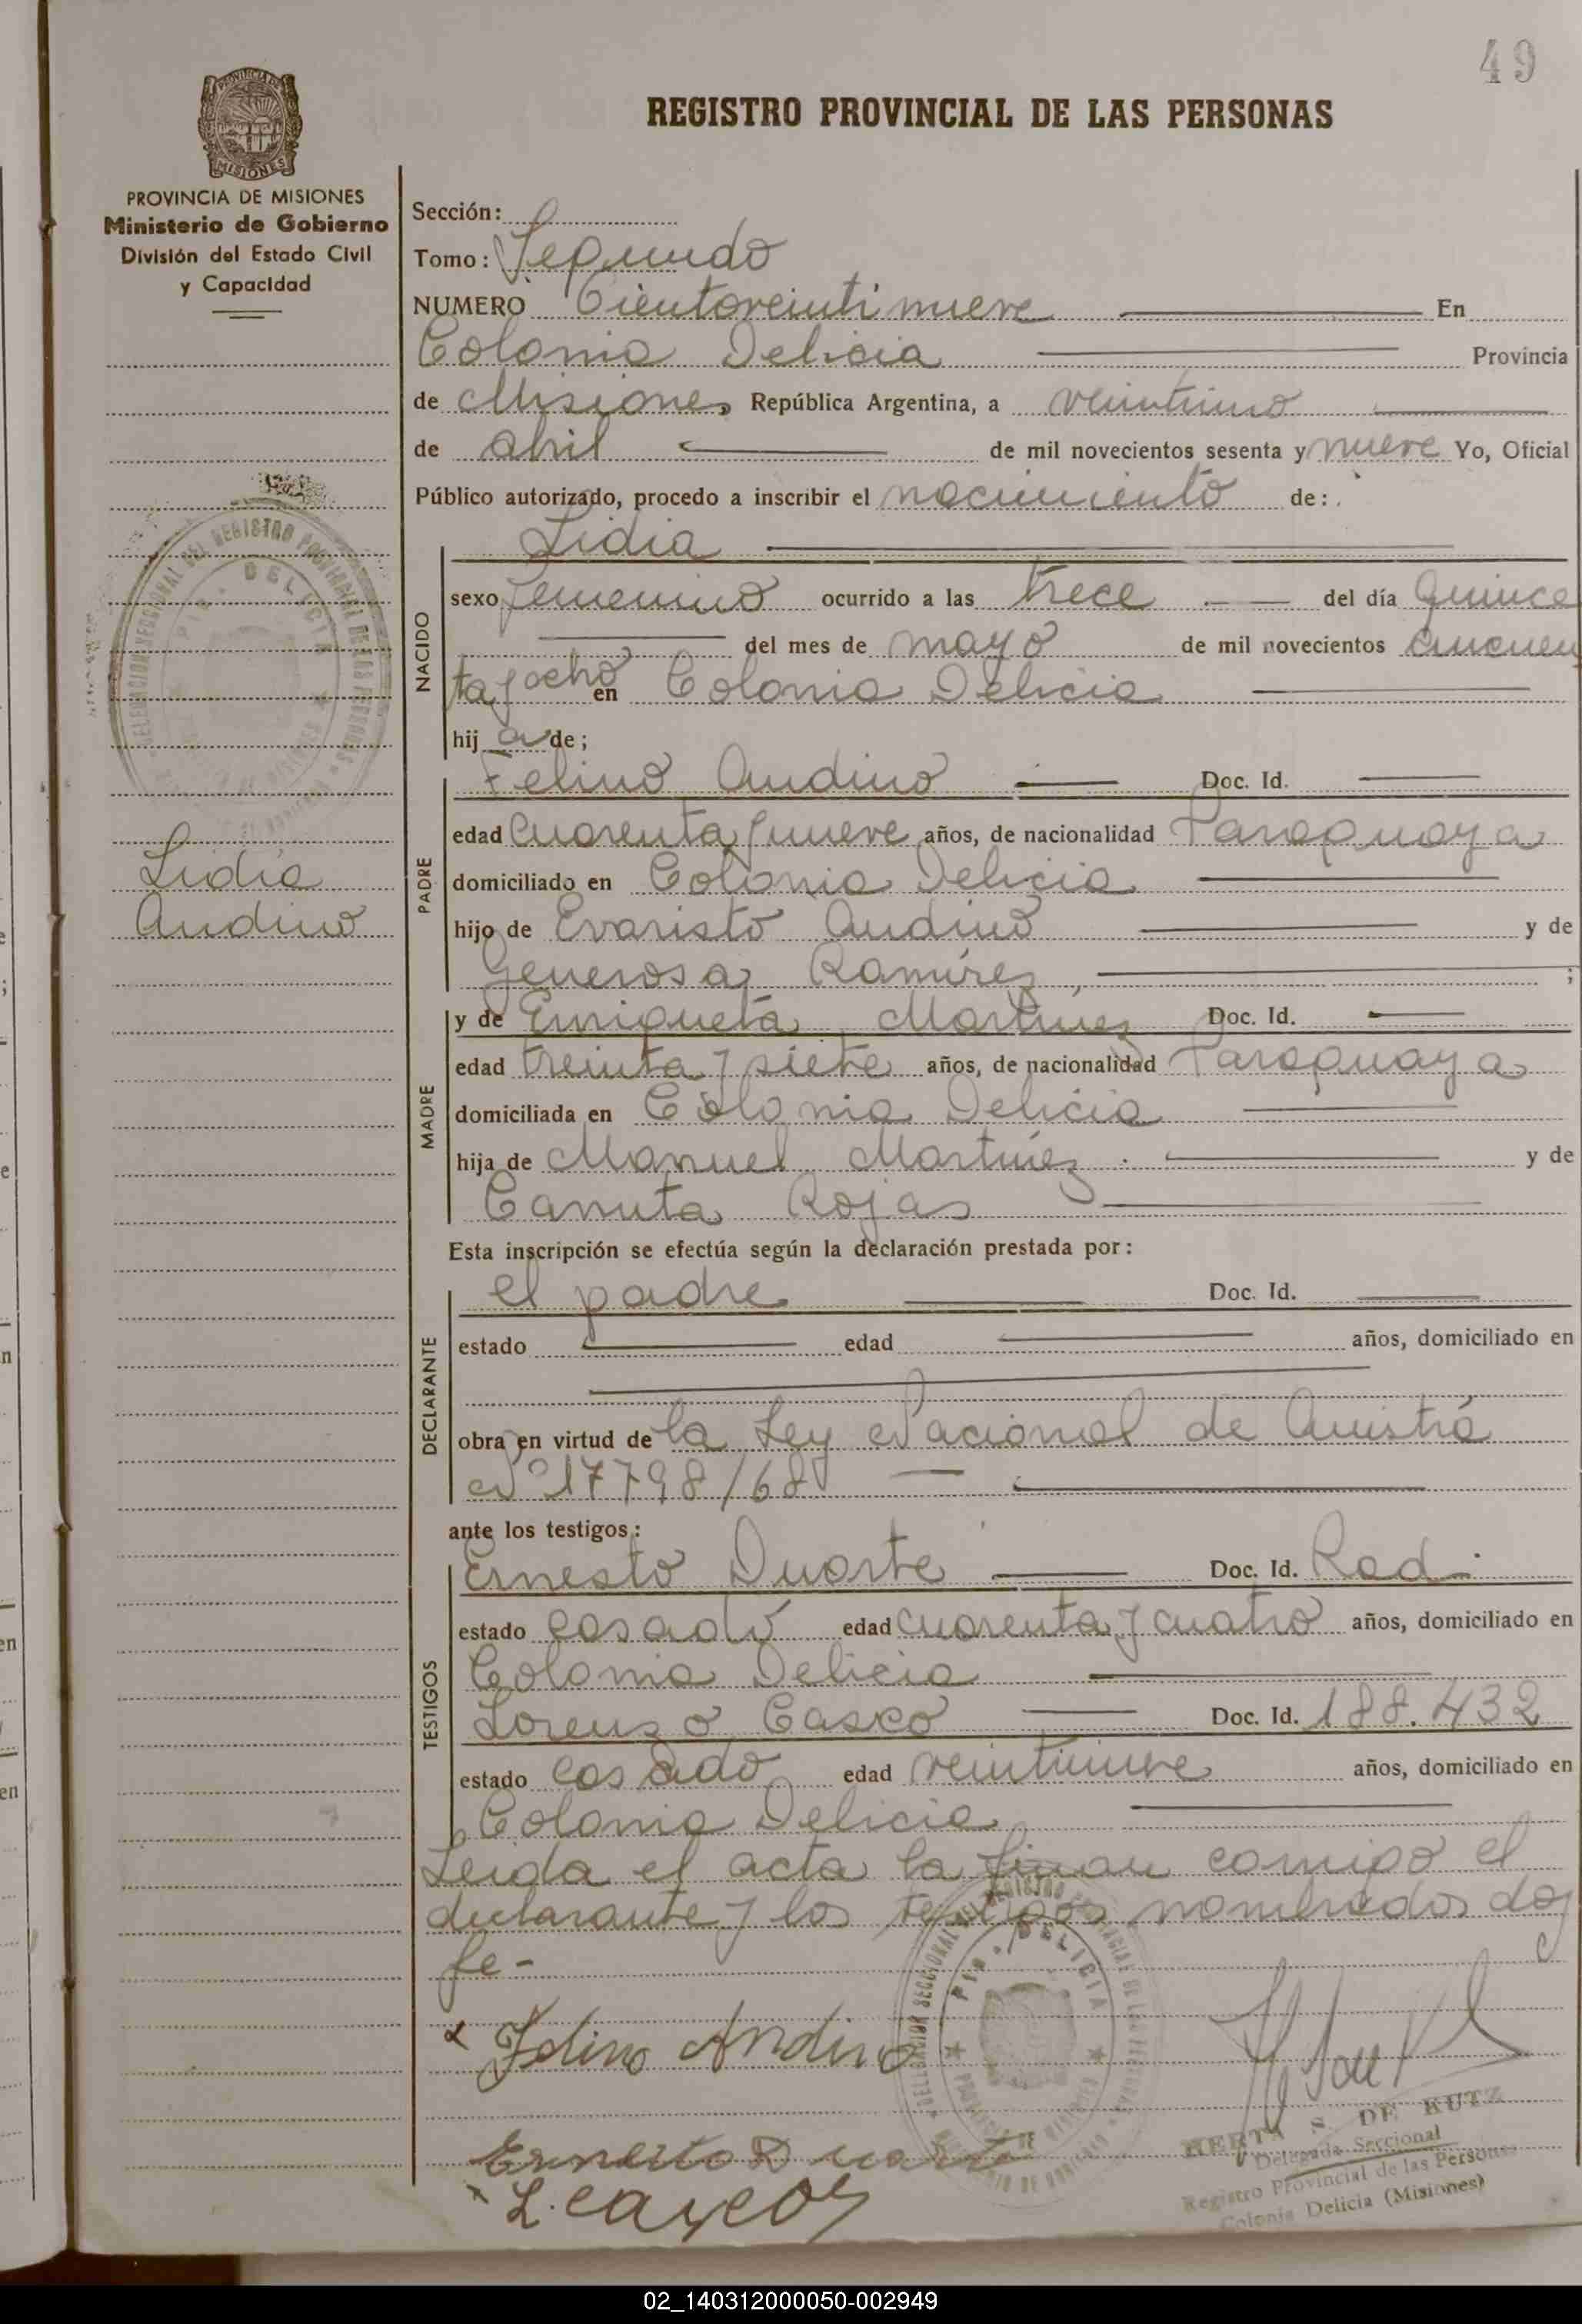 49
REGISTRO PROVINCIAL DE LAS PERSONAS
PROVINCIA DE MISIONES
MISIONES
PROVINCIA DE MISIONES
Ministerio de Gobierno
División del Estado Civil
y Capacidad
Sección:
Tomo: Segundo
NUMERO Cientoveintinueve En
Colonia Delicia Provincia
de Misiones República Argentina, a veintiuno
de abril de mil novecientos sesenta y nueve Yo, Oficial
Público autorizado, procedo a inscribir el nacimiento de:
Lidia
NACIDO
sexo femenino ocurrido a las trece del día quince
del mes de mayo de mil novecientos cincuen
ta y ocho en Colonia Delicia
hij a de;
PADRE
Felino Andino Doc. Id.
edad cuarenta y nueve años, de nacionalidad Paraguaya
domiciliado en Colonia Delicia
hijo de Evaristo Andino y de
Generosa Ramírez, ;
Lidia
Andino
MADRE
y de Enriqueta Martínez Doc. Id.
edad treinta y siete años, de nacionalidad Paraguaya
domiciliada en Colonia Delicia
hija de Manuel Martínez y de
Canuta Rojas
Esta inscripción se efectúa según la declaración prestada por:
DECLARANTE
el padre Doc. Id.
estado edad años, domiciliado en
obra en virtud de la Ley Nacional de Amistía
Nº 17798/68
ante los testigos:
TESTIGOS
Ernesto Duarte Doc. Id. Rad.
estado casado edad cuarenta y cuatro años, domiciliado en
Colonia Delicia
Lorenzo Casco Doc. Id. 188.432
estado casado edad veintinueve años, domiciliado en
Colonia Delicia
Leida el acta la firman comigo el
declarante y los testigos nombrados doy
fe-
Felino Andino
Ernesto Duarte
L. Casco
HERTA S. DE KUTZ
Delegada Seccional
Registro Provincial de las Personas
Colonia Delicia (Misiones)
DELEGACION SECCIONAL DEL REGISTRO PROVINCIAL DE LAS PERSONAS
DELICIA
02_140312000050-002949